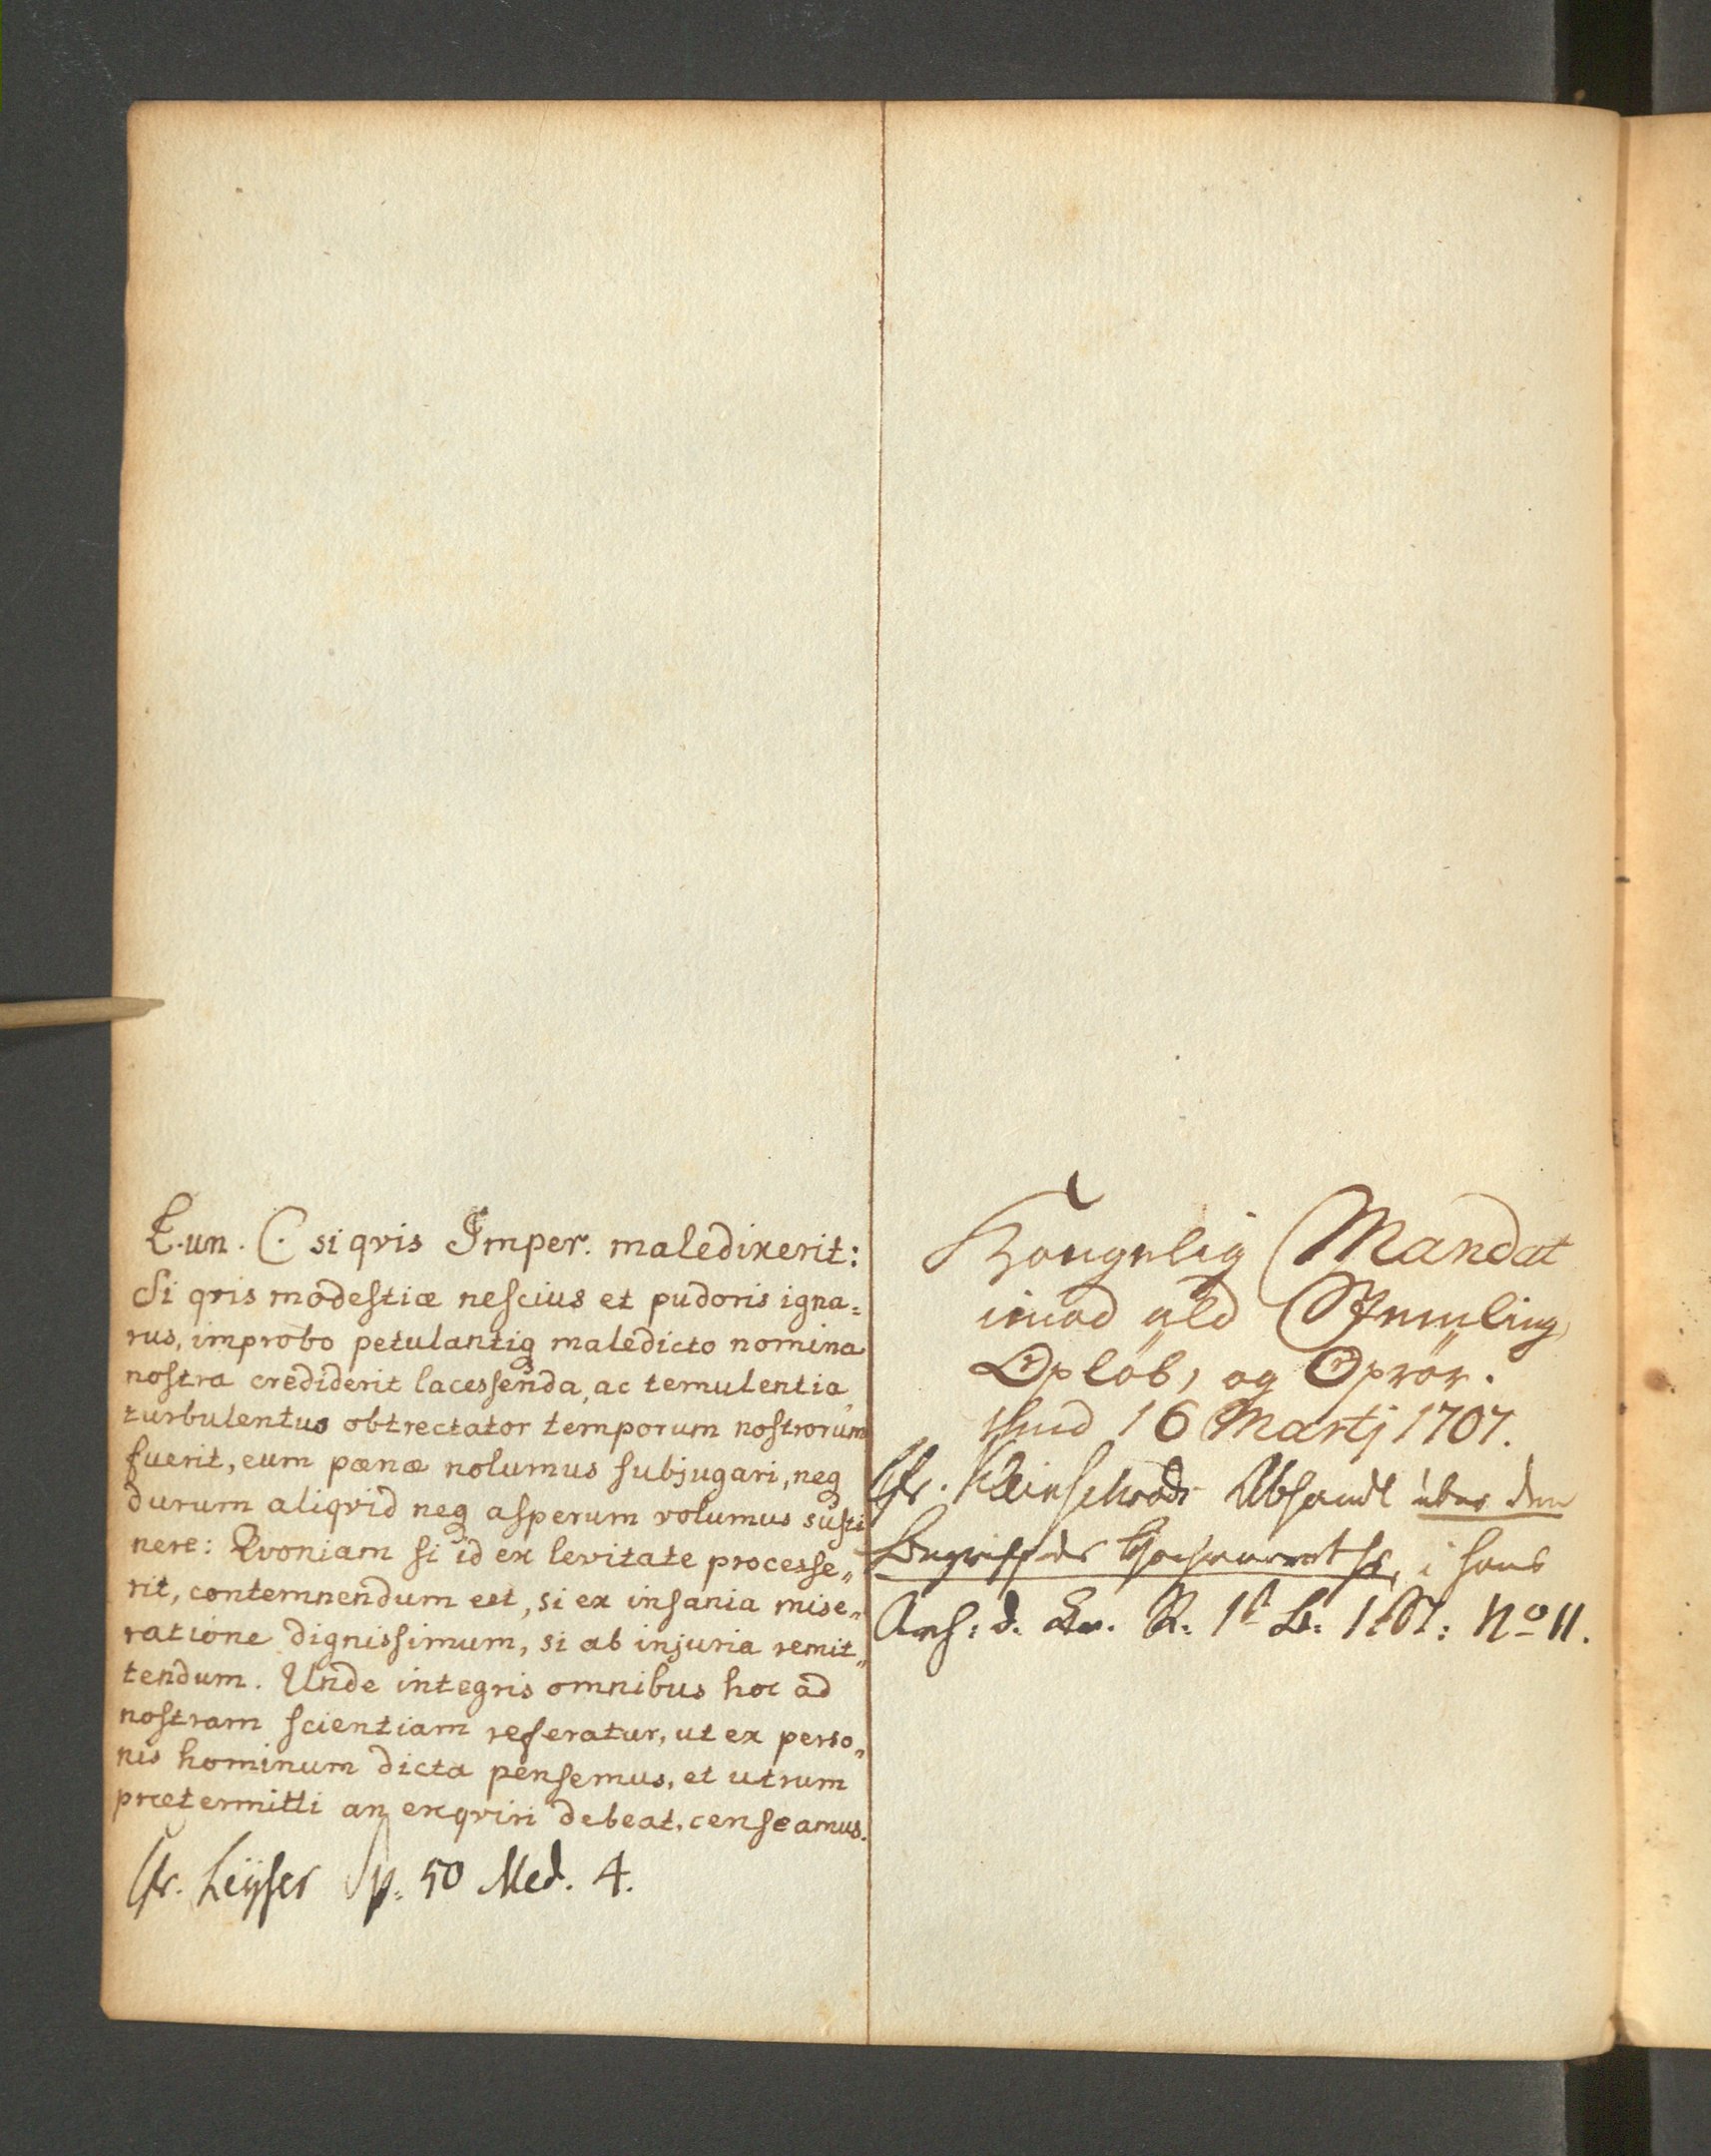 L. un. C. si qvis Imper. maledixerit:
Si qvis modestiæ nescius et pudoris igna=
rus, improbo petulantiq maledicto nomina
nostra crediderit lacessenda, ac temulentia
turbulentus obtrectator temporum nostrorum
fuerit, eum pœnæ nolumus subjugari, neq
durum aliqvid neq asperum volumus susti
nere: Qvoniam si id ex levitate processe„
rit, contemnendum est, si ex insania mise„
ratione dignissimum, si ab injuria remit„
tendum. Unde integris omnibus hoc ad
nostram scientiam referatur, ut ex perso„
nis hominum dicta pensemus, et utrum
prætermitti an exqviri debeat, censeamus.
Cfr. Leÿser Sp. 50 Med. 4.
Kongelig Mandat
imod ald Samling,
Opløb, og Oprør.
dend 16 Martj 1707.
Cfr. Kleinschrods Abhandl über den
Begriff des Hochverraths, i hans
Arch: d. Cr. R. 1t B. 1 St: No 11.